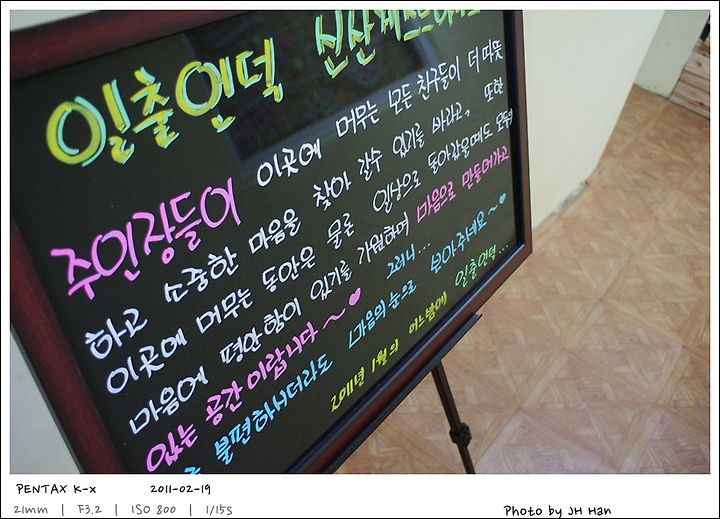 일출언덕 신산게스트하우스
주인장들이 이곳에 머무는 모든 친구들이 더 따뜻
하고 소중한 마음을 찾아 갈수 있기를 바라고, 또한
이곳에 머무는 동안은 물론 일상으로 돌아갔을때도 모두의
마음에 평안함이 있기를 기원하며 마음으로 만들어가고
있는 공간이랍니다~♥ 그러니...
불편하시더라도 마음의 눈으로 보아주세요~♥
2011년 1월의 어느밤에 일출언덕...
PENTAX K-x 2011-02-19
21mm | F3.2 | ISO 800 | 1/15s
Photo by JH Han